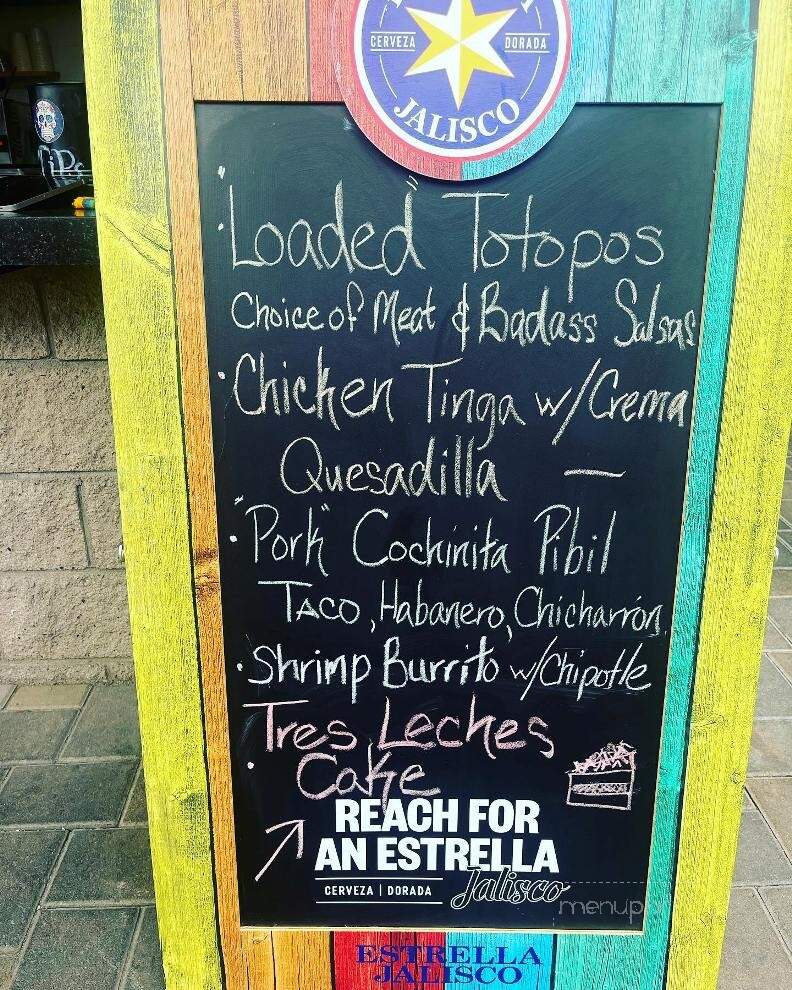 CERVEZA DORADA
JALISCO
TiPs
• "Loaded" Totopos
Choice of Meat & Badass Salsas
• Chicken Tinga w/Crema
Quesadilla —
• "Pork" Cochinita Pibil
TACO, Habanero, Chicharrón
• Shrimp Burrito w/Chipotle
Tres Leches
• Cake
REACH FOR
AN ESTRELLA
CERVEZA | DORADA Jalisco
menupix
ESTRELLA
JALISCO